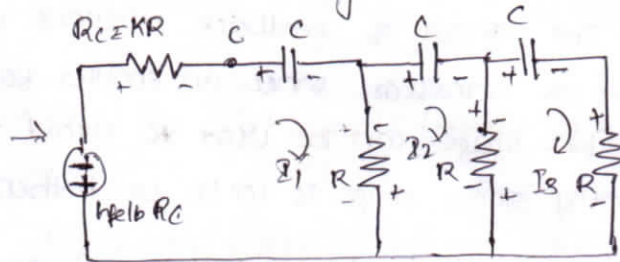 RC=KR
C
C
C
C
I1
R
I2
R
I3
R
hfeIb RC